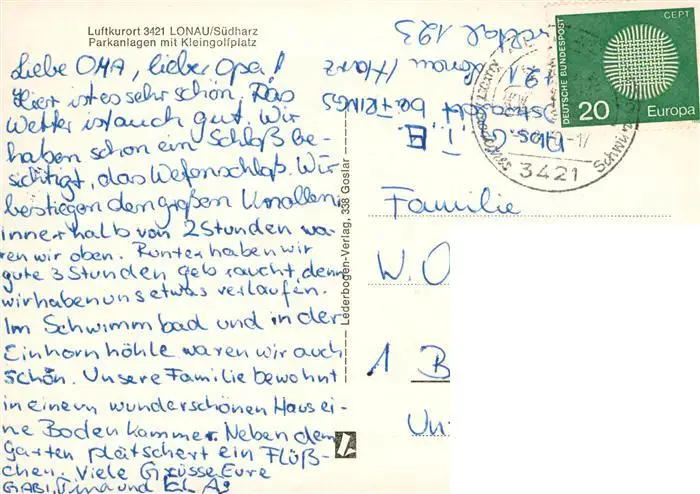 Luftkurort 3421 LONAU/Südharz
Parkanlagen mit Kleingolfplatz
Liebe OMA, lieber Opa!
Hier ist es sehr schön. Das
Wetter ist auch gut. Wir
haben schon ein Schloß be-
sichtigt, das Welfenschloß. Wir
bestiegen den großen Knollen,
innerhalb von 2 Stunden wa-
ren wir oben. Runter haben wir
gute 3 Stunden gebraucht, denn
wir haben uns etwas verlaufen.
Im Schwimmbad und in der
Einhornhöhle waren wir auch
schon. Unsere Familie bewohnt
in einem wunderschönen Haus ei-
ne Bodenkammer. Neben dem
Garten plätschert ein Flüß-
chen. Viele Grüsse Eure
GABI, Tina und
Lederbogen-Verlag, 338 Goslar
Abs. G.
bei
Lonau/Harz
123
3421
DEUTSCHE BUNDESPOST
CEPT
20
Europa
Familie
W. O
1 B
Un